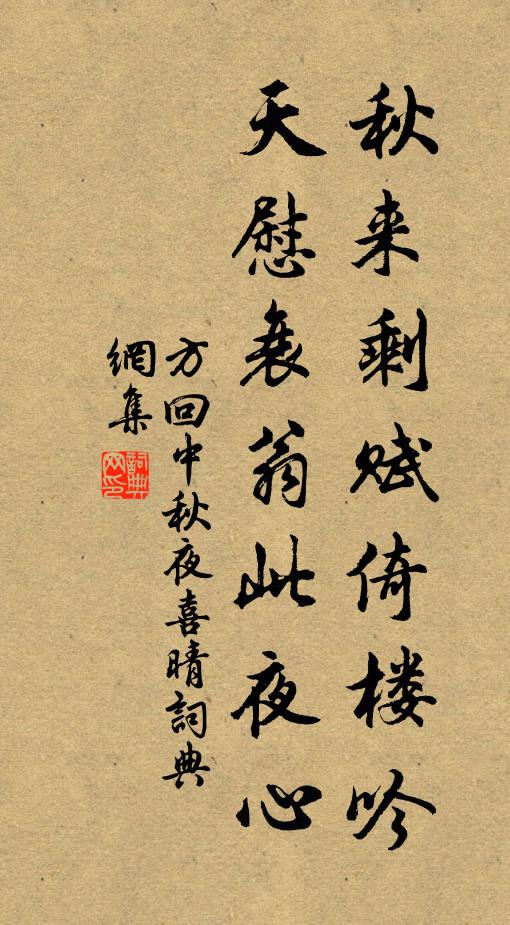 秋来剩赋倚楼吟
天慰衰翁此夜心
方回中秋夜喜晴詞典
網集
詞典網印